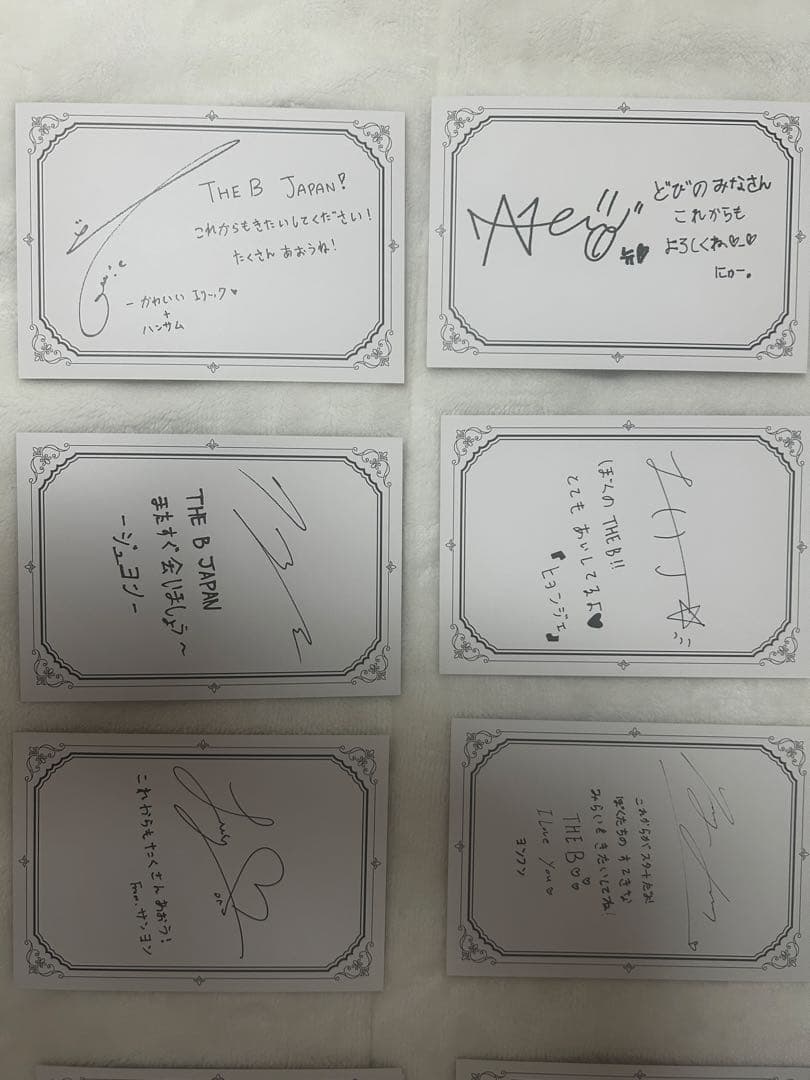 THE B JAPAN!
これからもきたいしてください!
たくさん あおうね!
ー かわいい エリック♥
+
ハンサム
どびの みなさん
これからも
よろしくね♡_♡
にゅー。
뉴♥
THE B JAPAN
またすぐ会いましょう〜
-ジュヨン-
ぼくの THE B!!
とても あいしてるよ♥
『ヒョンジェ』
これからもたくさんあおう!
From.サンヨン
これからがスタートだよ!
ぼくたちの すてきな
みらいをきたいしてね!
THE B♡♡
I Love You♡
ヨンフン